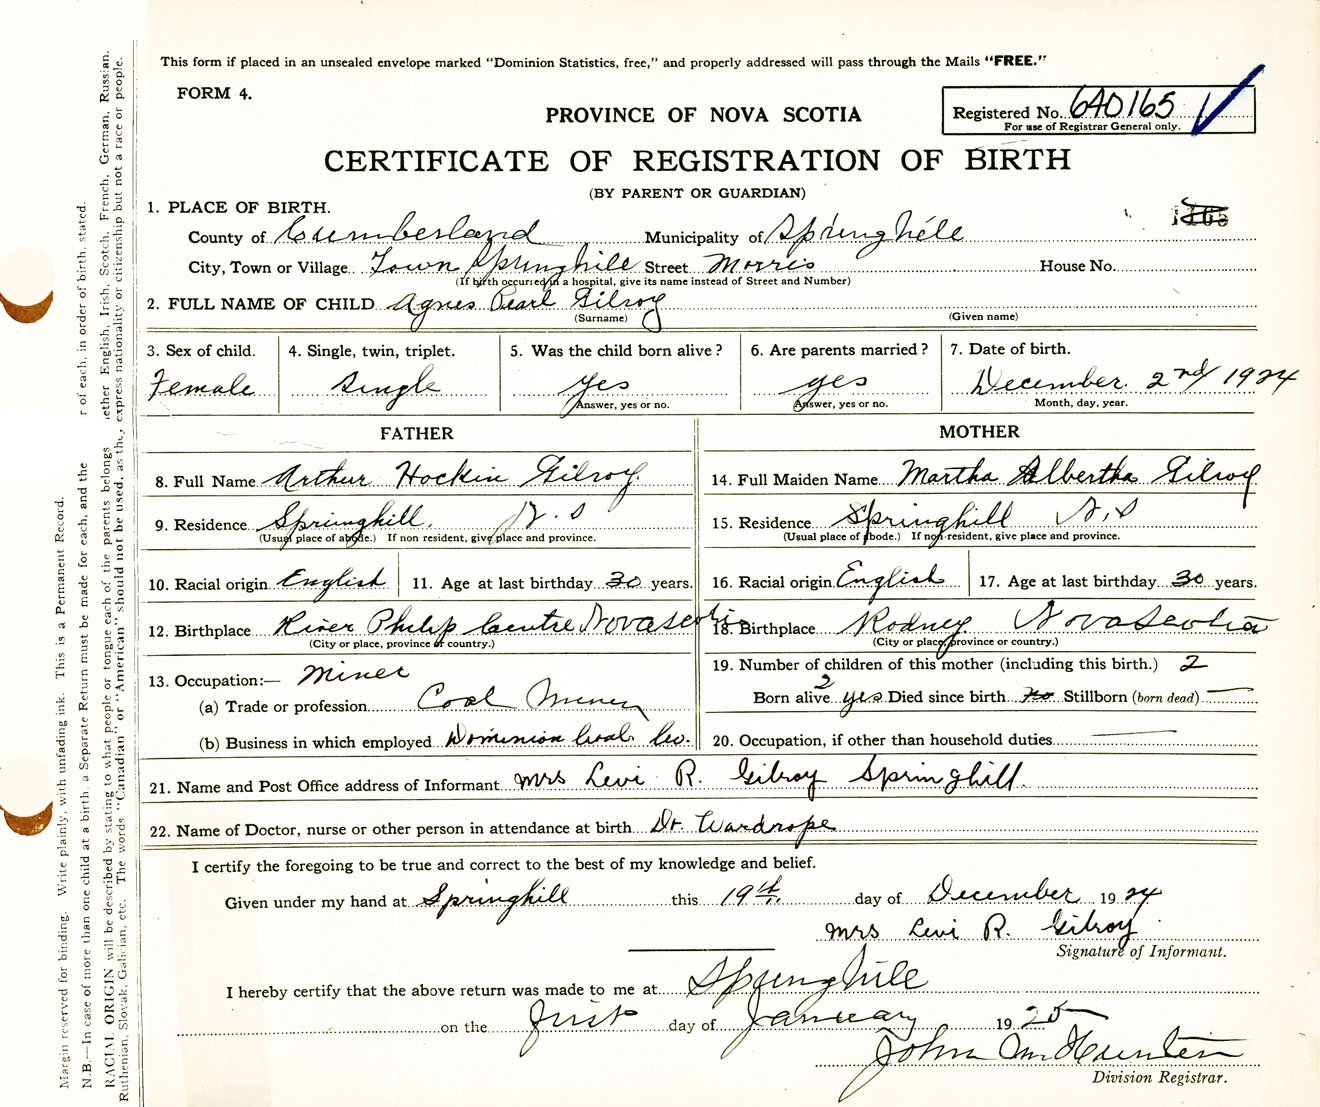 This form if placed in an unsealed envelope marked "Dominion Statistics, free," and properly addressed will pass through the Mails "FREE."
FORM 4.
PROVINCE OF NOVA SCOTIA
Registered No. 640165
For use of Registrar General only.
CERTIFICATE OF REGISTRATION OF BIRTH
(BY PARENT OR GUARDIAN)
1. PLACE OF BIRTH.
County of Cumberland Municipality of Springhill
City, Town or Village Town Springhill Street Morris House No.
(If birth occurred in a hospital, give its name instead of Street and Number)
2. FULL NAME OF CHILD Agnes Pearl Gilroy
(Surname) (Given name)
3. Sex of child. 4. Single, twin, triplet. 5. Was the child born alive? 6. Are parents married? 7. Date of birth.
Female Single yes yes December 2nd/ 1924
Answer, yes or no. Answer, yes or no. Month, day, year.
FATHER MOTHER
8. Full Name Arthur Hockin Gilroy. 14. Full Maiden Name Martha Albertha Gilroy
9. Residence Springhill. N.S 15. Residence Springhill N.S
(Usual place of abode.) If non resident, give place and province. (Usual place of abode.) If non-resident, give place and province.
10. Racial origin English 11. Age at last birthday 30 years. 16. Racial origin English 17. Age at last birthday 30 years.
12. Birthplace River Philip Centre Nova Scotia 18. Birthplace Rodney Nova Scotia
(City or place, province or country.) (City or place, province or country.)
13. Occupation:— Miner 19. Number of children of this mother (including this birth.) 2
(a) Trade or profession Coal Miner Born alive 2 yes Died since birth no Stillborn (born dead)
(b) Business in which employed Dominion Coal Co. 20. Occupation, if other than household duties
21. Name and Post Office address of Informant Mrs Levi R. Gilroy Springhill.
22. Name of Doctor, nurse or other person in attendance at birth Dr. Wardrope
I certify the foregoing to be true and correct to the best of my knowledge and belief.
Given under my hand at Springhill this 19th. day of December 1924
Mrs Levi R. Gilroy
Signature of Informant.
I hereby certify that the above return was made to me at Springhill
on the first day of January 1925
John
Division Registrar.
Margin reserved for binding. Write plainly, with unfading ink. This is a Permanent Record.
N.B.—In case of more than one child at a birth, a Separate Return must be made for each, and the r of each, in order of birth, stated.
RACIAL ORIGIN will be described by stating to what people or tongue each of the parents belongs ether English, Irish, Scotch, French, German, Russian,
Ruthenian, Slovak, Galician, etc. The words "Canadian" or "American" should not be used, as they express nationality or citizenship but not a race or people.